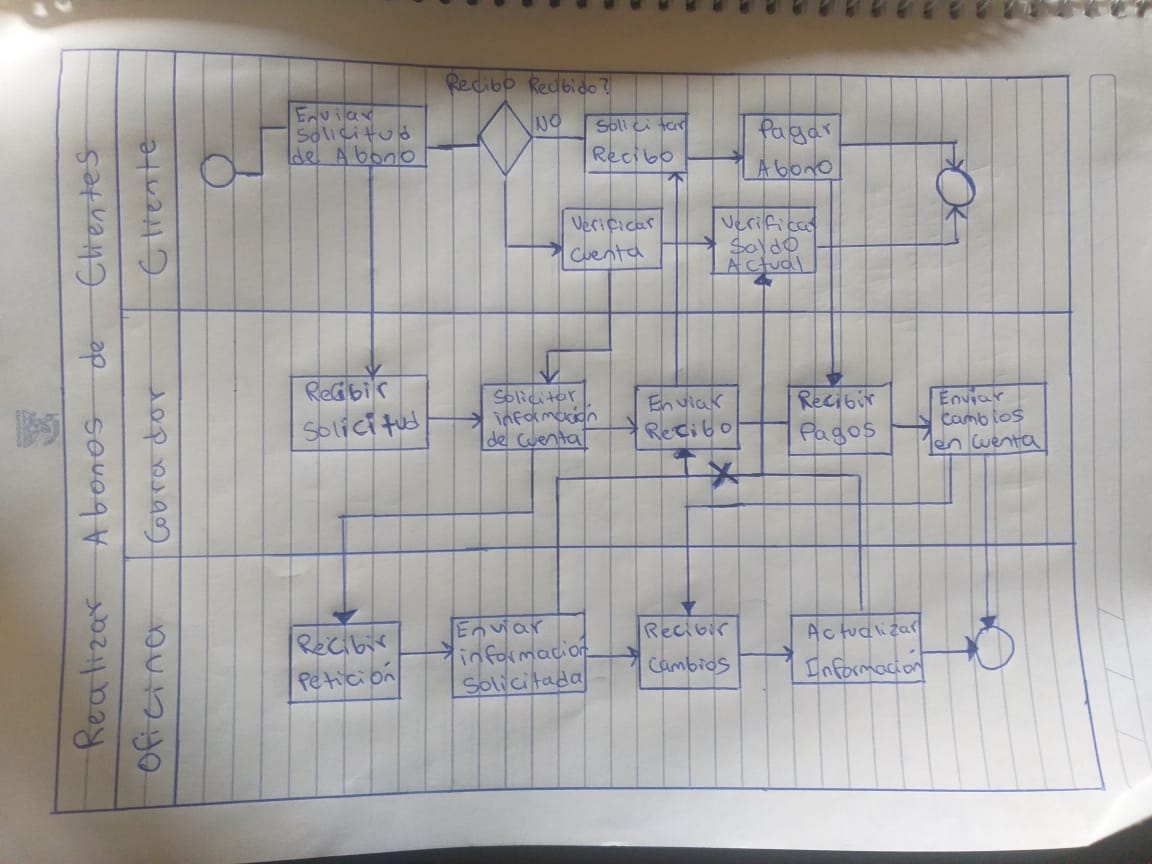 Realizar Abonos de Clientes
Cliente
Recibo Recibido?
Enviar
Solicitud
de Abono
NO
Solicitar
Recibo
Pagar
Abono
Verificar
Cuenta
Verificar
Saldo
Actual
Cobrador
Recibir
Solicitud
Solicitar
información
de cuenta
Enviar
Recibo
Recibir
Pagos
Enviar
cambios
en cuenta
Oficina
Recibir
Petición
Enviar
información
Solicitada
Recibir
Cambios
Actualizar
Información